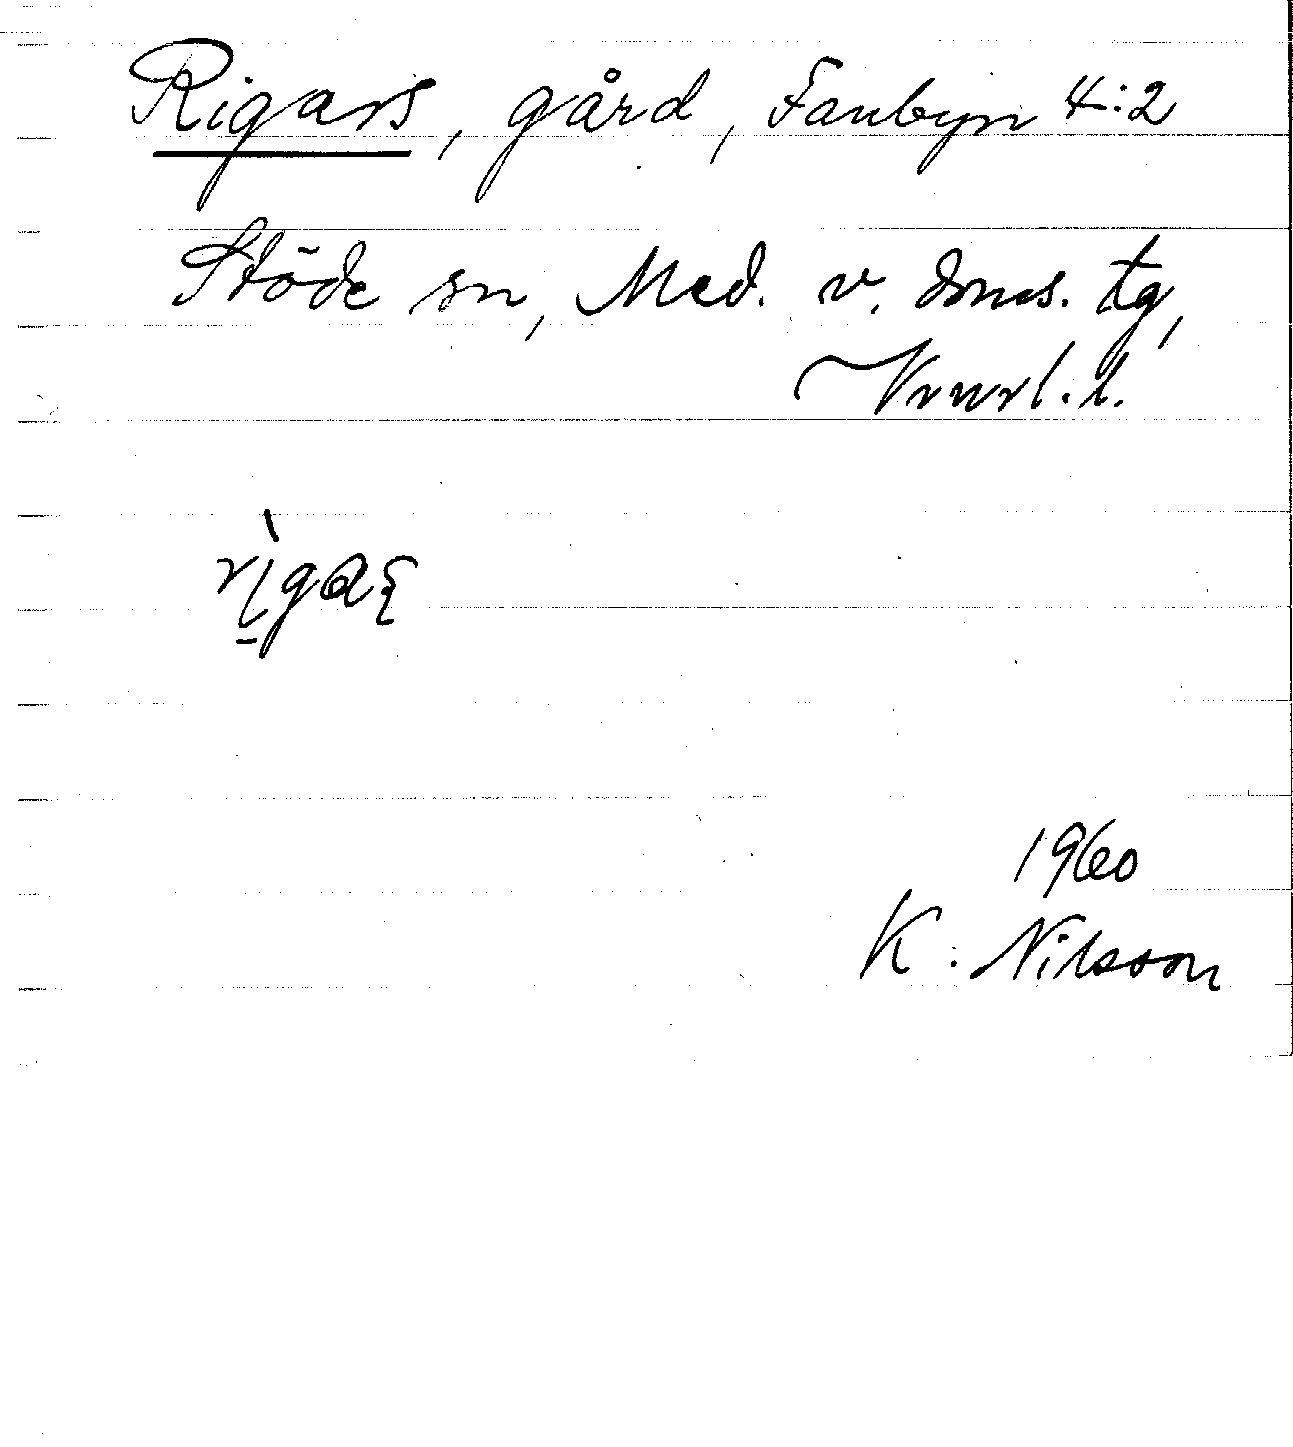 Rigars, gård, Fanbyn 4:2
Stöde sn, Med. v. doms. tg,
Vnrl. l.
1960
K. Nilsson